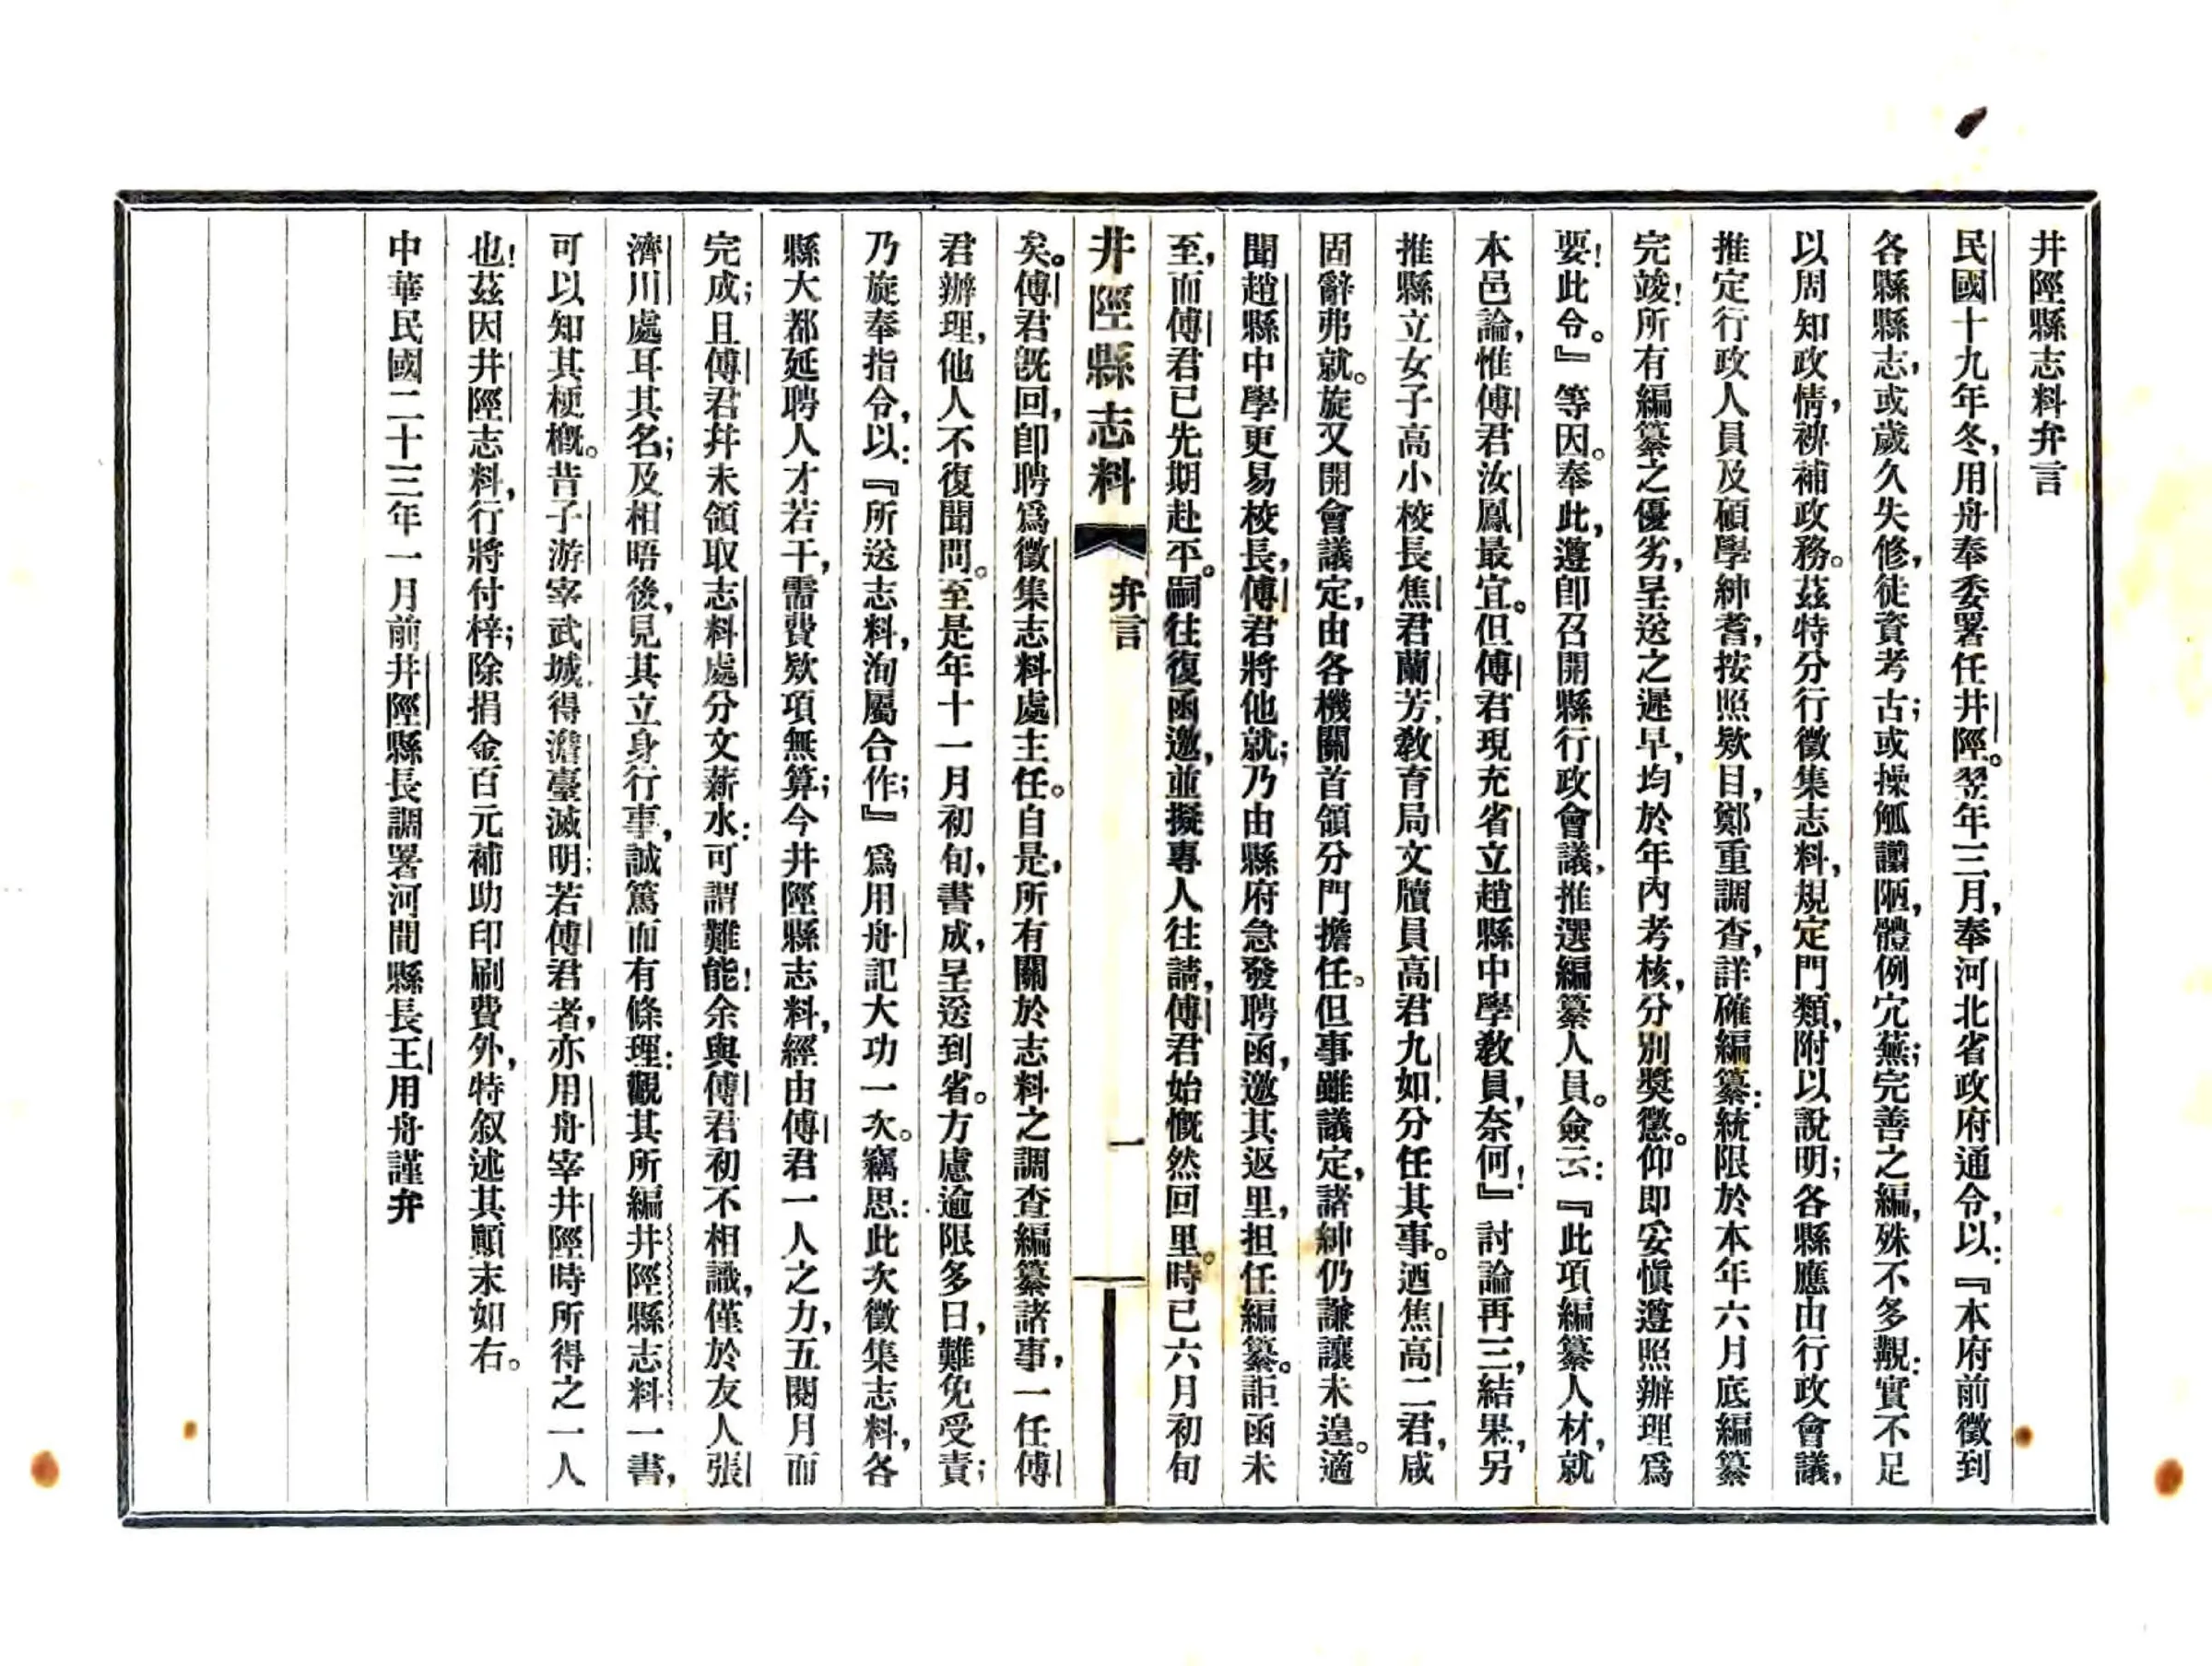 井陘縣志料弁言
民國十九年冬，用舟奉委署任井陘。翌年三月，奉河北省政府通令，以：『本府前徵到
各縣縣志，或歲久失修，徒資考古；或操觚譾陋，體例宂蕪；完善之編，殊不多覯：實不足
以周知政情，裨補政務。茲特分行徵集志料，規定門類，附以說明；各縣應由行政會議，
推定行政人員及碩學紳耆，按照欵目，鄭重調查，詳確編纂：統限於本年六月底編纂
完竣！所有編纂之優劣，呈送之遲早，均於年內考核，分別獎懲。仰即妥愼遵照辦理爲
要！此令。』等因。奉此，遵卽召開縣行政會議，推選編纂人員。僉云：『此項編纂人材，就
本邑論，惟傅君汝鳳最宜。但傅君現充省立趙縣中學教員，奈何！』討論再三，結果，另
推縣立女子高小校長焦君蘭芳，敎育局文牘員高君九如，分任其事。迺焦高二君，咸
固辭弗就。旋又開會議定，由各機關首領分門擔任。但事雖議定，諸紳仍謙讓未遑。適
聞趙縣中學更易校長，傅君將他就；乃由縣府急發聘函，邀其返里，担任編纂。詎函未
至，而傅君已先期赴平。嗣往復函邀，並擬專人往請，傅君始慨然回里。時已六月初旬
井陘縣志料 弁言 一
矣。傅君旣回，卽聘爲徵集志料處主任。自是，所有關於志料之調查編纂諸事，一任傅
君辦理，他人不復聞問。至是年十一月初旬，書成，呈送到省。方慮逾限多日，難免受責；
乃旋奉指令，以：『所送志料，洵屬合作；』爲用舟記大功一次。竊思：此次徵集志料，各
縣大都延聘人才若干，需費欵項無算；今井陘縣志料，經由傅君一人之力，五閱月而
完成；且傅君幷未領取志料處分文薪水：可謂難能！余與傅君初不相識，僅於友人張
濟川處耳其名；及相晤後，見其立身行事，誠篤而有條理：觀其所編井陘縣志料一書，
可以知其梗槪。昔子游宰武城，得澹臺滅明；若傅君者，亦用舟宰井陘時所得之一人
也！茲因井陘志料，行將付梓；除捐金百元補助印刷費外，特叙述其顚末如右。
中華民國二十三年一月前井陘縣長調署河間縣長王用舟謹弁